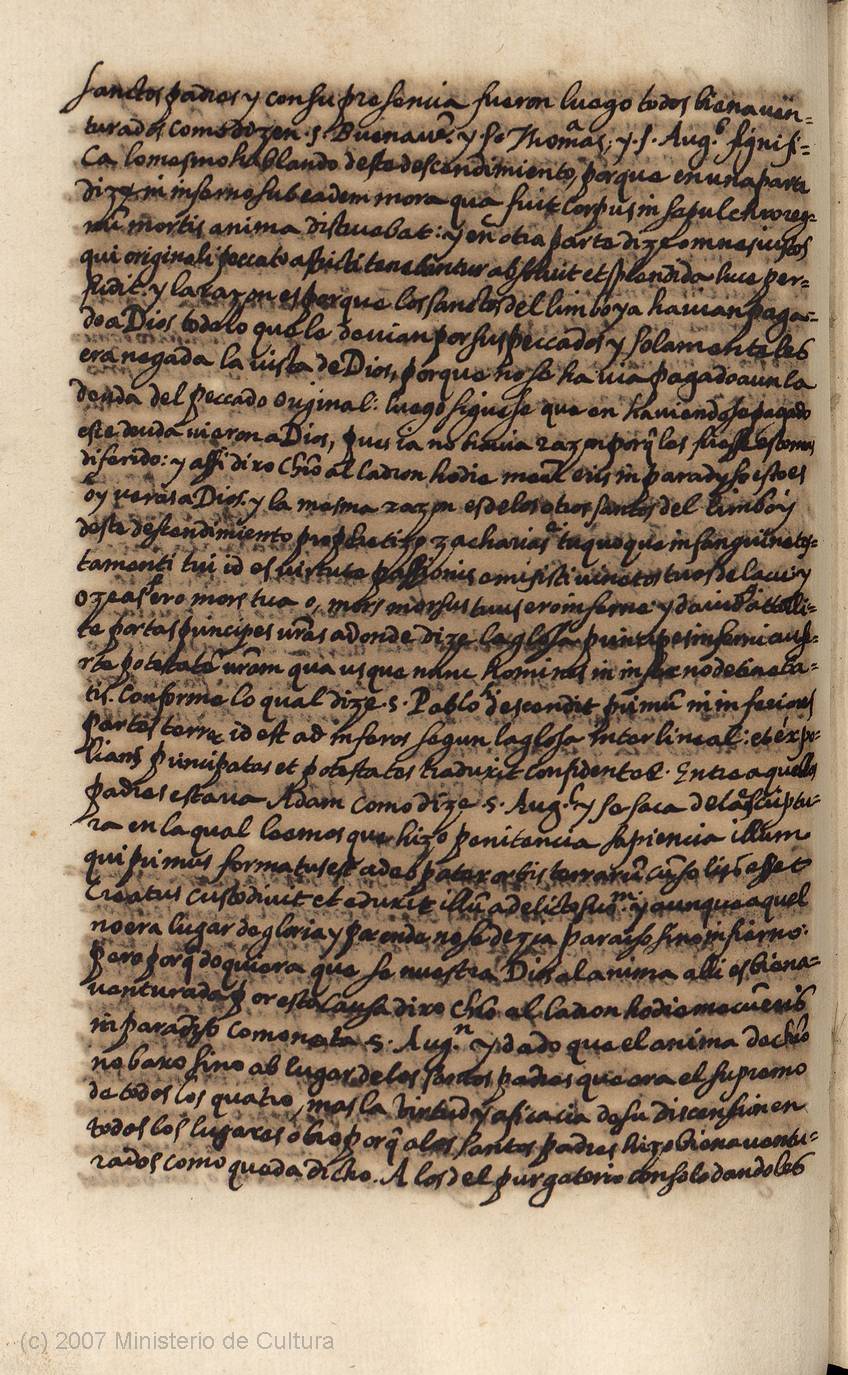 sanctos padres y con su presencia fueron luego todos bienauen-
turados como dizen .s. Buenauẽ. y sto Thomas, y .s. Augᵗ. signifi-
ca lo mesmo hablando deste descendimiento, porque en una parte
dize in inferno sub eadem mora qua fuit corpus in sepulchro reg-
nũ mortis anima distruebat: y en otra parte dize omnes iustos
qui originali peccato astricti tenebantur absoluit et splendida luce per-
fudit. y la razon es porque los sanctos del limbo ya hauian paga-
do a Dios todo lo que le deuian por sus peccados y solamente les
era negada la uista de Dios, porque no se hauia pagado aun la
deuda del peccado original: luego siguese que en hauiendose pagado
este deuda uieron a Dios, pues ia no hauia razon porq̃ les fuesse
diferido: y assi dixo Chrõ al ladron hodie mecũ eris in paradyso esto es
oy veras a Dios. y la mesma razon es de los otros santos del limbo y
deste descendimiento prophetizo zacharias tu quoque in sanguine tes-
tamenti tui id es uirtute passionis emisisti uinctos tuos de lacu: y
ozeas ero mors tua o, mors morsus tuus ero inferne: y dauid attolli-
te portas principes uras adonde dize la glosa principes inferni aufe-
rte potestatẽ uram qua usque nunc homines in inferno detineba-
tis. conforme lo qual dize s. Pablo descendit primũ in inferiores
partes terræ id est ad inferos segun la glosa interlineal: et expo-
lians principatos et potestates traduxit confidenter. Entre aquellos
padres estaua Adam como dize s. Augᵗ. y se saca de la scriptu-
ra en la qual leemos que hizo penitencia sapiencia illum
qui primus formatus est a deo pater orbis terrarũ cũ solus esset
creatus custodiuit et eduxit illũ a delicto suo. y aunque aquel
no era lugar de gloria y por ende no se dezia paraiso sino infierno.
pero porq̃ do quiera que se muestra Dios al anima alli es biena-
uenturada por esta causa dixo Chrõ al ladron hodie mecũ eris
in paradiso como nota s. Augⁿ. y dado que el anima de chrõ
no baxo sino al lugar de los santos padres que era el supremo
de todos los quatro, mas la virtud y aficacia de su discension en
todos los lugares obro porq̃ a los santos padres hizo bienauentu-
rados como queda dicho. A los del purgatorio consolo dandoles
(c) 2007 Ministerio de Cultura